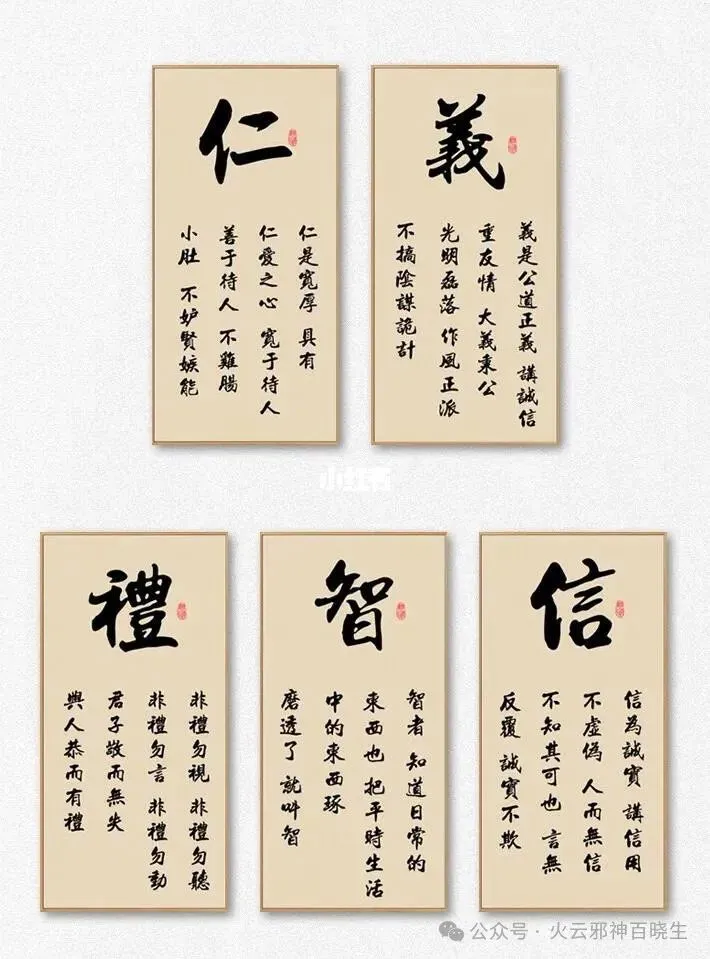 仁
仁是寬厚 具有
仁愛之心 寬于待人
善于待人 不雞腸
小肚 不妒賢嫉能
義
義是公道正義 講誠信
重友情 大義秉公
光明磊落 作風正派
不搞陰謀詭計
小红书
禮
非禮勿視 非禮勿聽
非禮勿言 非禮勿動
君子敬而無失
與人恭而有禮
智
智者 知道日常的
東西也 把平時生活
中的東西琢
磨透了 就叫智
信
信為誠實 講信用
不虛偽 人而無信
不知其可也 言無
反覆 誠實不欺
公众号 · 火云邪神百晓生